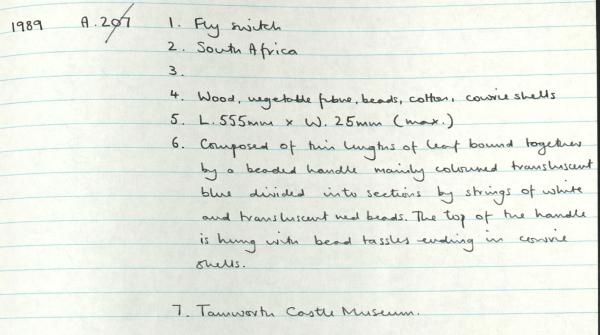 1989 A.207 1. Fly switch
2. South Africa
3.
4. Wood, vegetable fibre, beads, cotton, cowrie shells
5. L.555mm x W.25mm (max.)
6. Composed of thin lengths of leaf bound together
by a beaded handle mainly coloured transluscent
blue divided into sections by strings of white
and transluscent red beads. The top of the handle
is hung with bead tassles ending in cowrie
shells.
7. Tamworth Castle Museum.